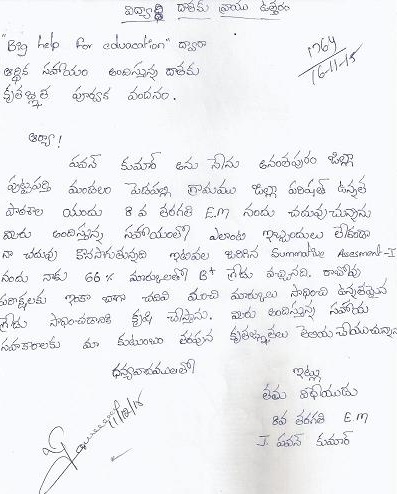 విద్యార్థి దాతకు వ్రాయు ఉత్తరం
"Big help for eduacation" ద్వారా
ఆర్థిక సహాయం అందిస్తున్న దాతకు
కృతజ్ఞత పూర్వక వందనం.
1764
16-11-15
ఆర్యా!
పవన్ కుమార్ అను నేను అనంతపురం జిల్లా
పుట్టపర్తి మండలం పెడపల్లి గ్రామము జిల్లా పరిషత్ ఉన్నత
పాఠశాల యందు 8 వ తరగతి E.M నందు చదువుచున్నాను
మీరు అందిస్తున్న సహాయంతో ఎలాంటి ఇబ్బందులు లేకుండా
నా చదువు కొనసాగుతున్నది ఇటీవల జరిగిన Summative Assesment-I
నందు నాకు 66% మార్కులతో B+ గ్రేడు వచ్చినది. రాబోవు
పరీక్షలకు ఇంకా బాగా చదివి మంచి మార్కులు సాధించి ఉన్నతమైన
గ్రేడు సాధించడానికి కృషి చేస్తాను. మీరు అందిస్తున్న సహాయ
సహకారాలకు మా కుటుంబం తరపున కృతజ్ఞతలు తెలియచేయుచున్నాను
ధన్యవాదములతో
ఇట్లు
తమ విధేయుడు
8వ తరగతి E.M
J. పవన్ కుమార్